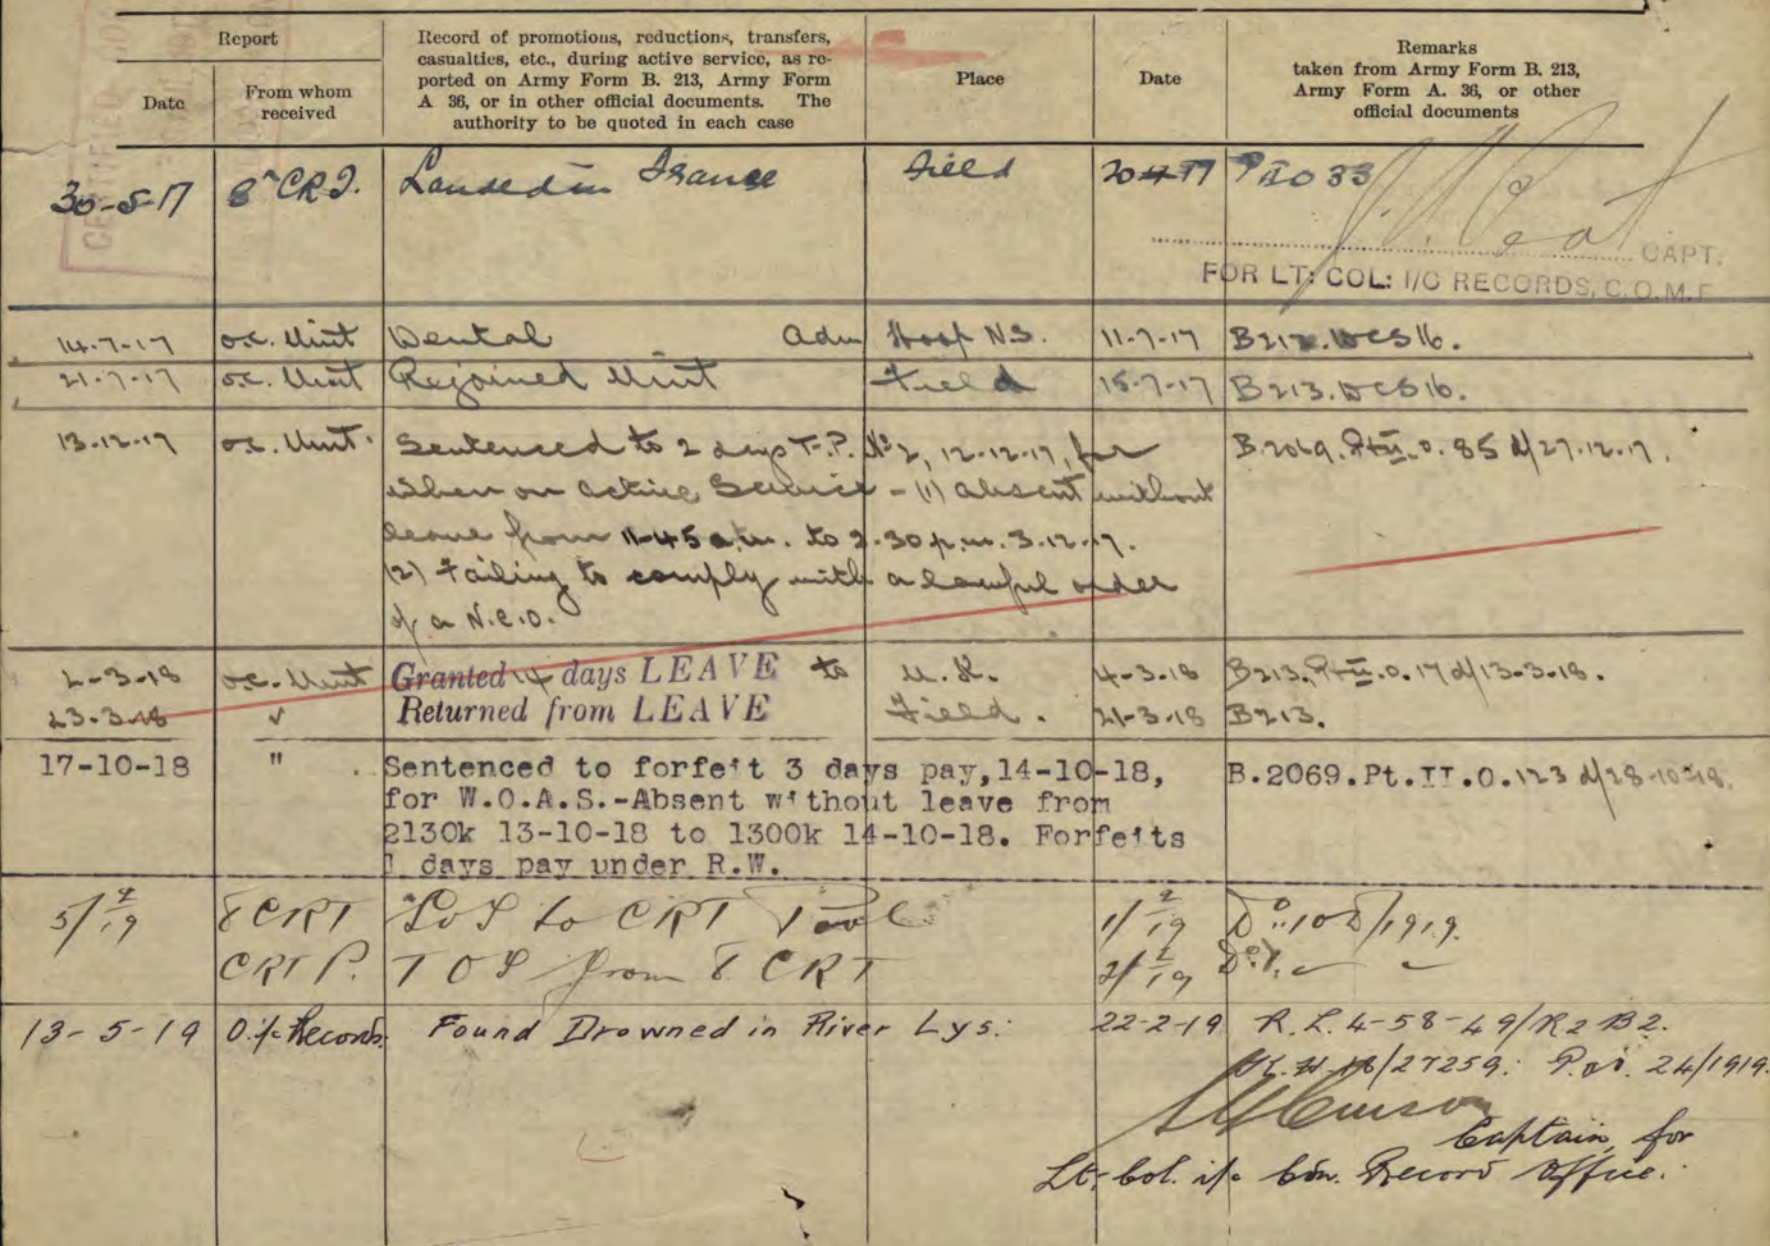 Report
Date
From whom
received
Record of promotions, reductions, transfers,
casualties, etc., during active service, as re-
ported on Army Form B. 213, Army Form
A 36, or in other official documents. The
authority to be quoted in each case
Place
Date
Remarks
taken from Army Form B. 213,
Army Form A. 36, or other
official documents
CERTIFIED
30-5-17 8" CRT. Landed in France Field 20-4-17 PII O 33
CAPT.
FOR LT: COL: I/C RECORDS, C.O.M.F
14-7-17 O.C. Unit Dental Adm Hosp N.S. 11-7-17 B213. DCS16.
21-7-17 O.C. Unit Rejoined Unit Field 15-7-17 B213. DCS16.
13-12-17 O.C. Unit. Sentenced to 2 days F.P. No 2, 12-12-17, for B.2069. Pt II. O. 85 d/27-12-17.
when on active Service - (1) absent without
leave from 11-45 a.m. to 2-30 p.m. 3-12-17.
(2) Failing to comply with a lawful order
of a N.C.O.
2-3-18 O.C. Unit Granted 14 days LEAVE to U.K. 4-3-18 B213. Pt II. O. 17 d/13-3-18.
23-3-18 Returned from LEAVE Field. 21-3-18 B213.
17-10-18 " Sentenced to forfeit 3 days pay, 14-10-18, B.2069.Pt.II.O.123 d/28-10-18.
for W.O.A.S.-Absent without leave from
2130k 13-10-18 to 1300k 14-10-18. Forfeits
1 days pay under R.W.
5/2/19 8 CRT SOS to CRT Pool 1/2/19 Do. 10 /1919.
CRT P. TOS from 8 CRT 2/2/19 Do.
13-5-19 O. i/c Records. Found Drowned in River Lys: 22-2-19 R.L. 4-58-49/R2 B2.
/27259: P.OI. 24/1919.
Captain, for
Lt, Col. i/c Can. Record Office.